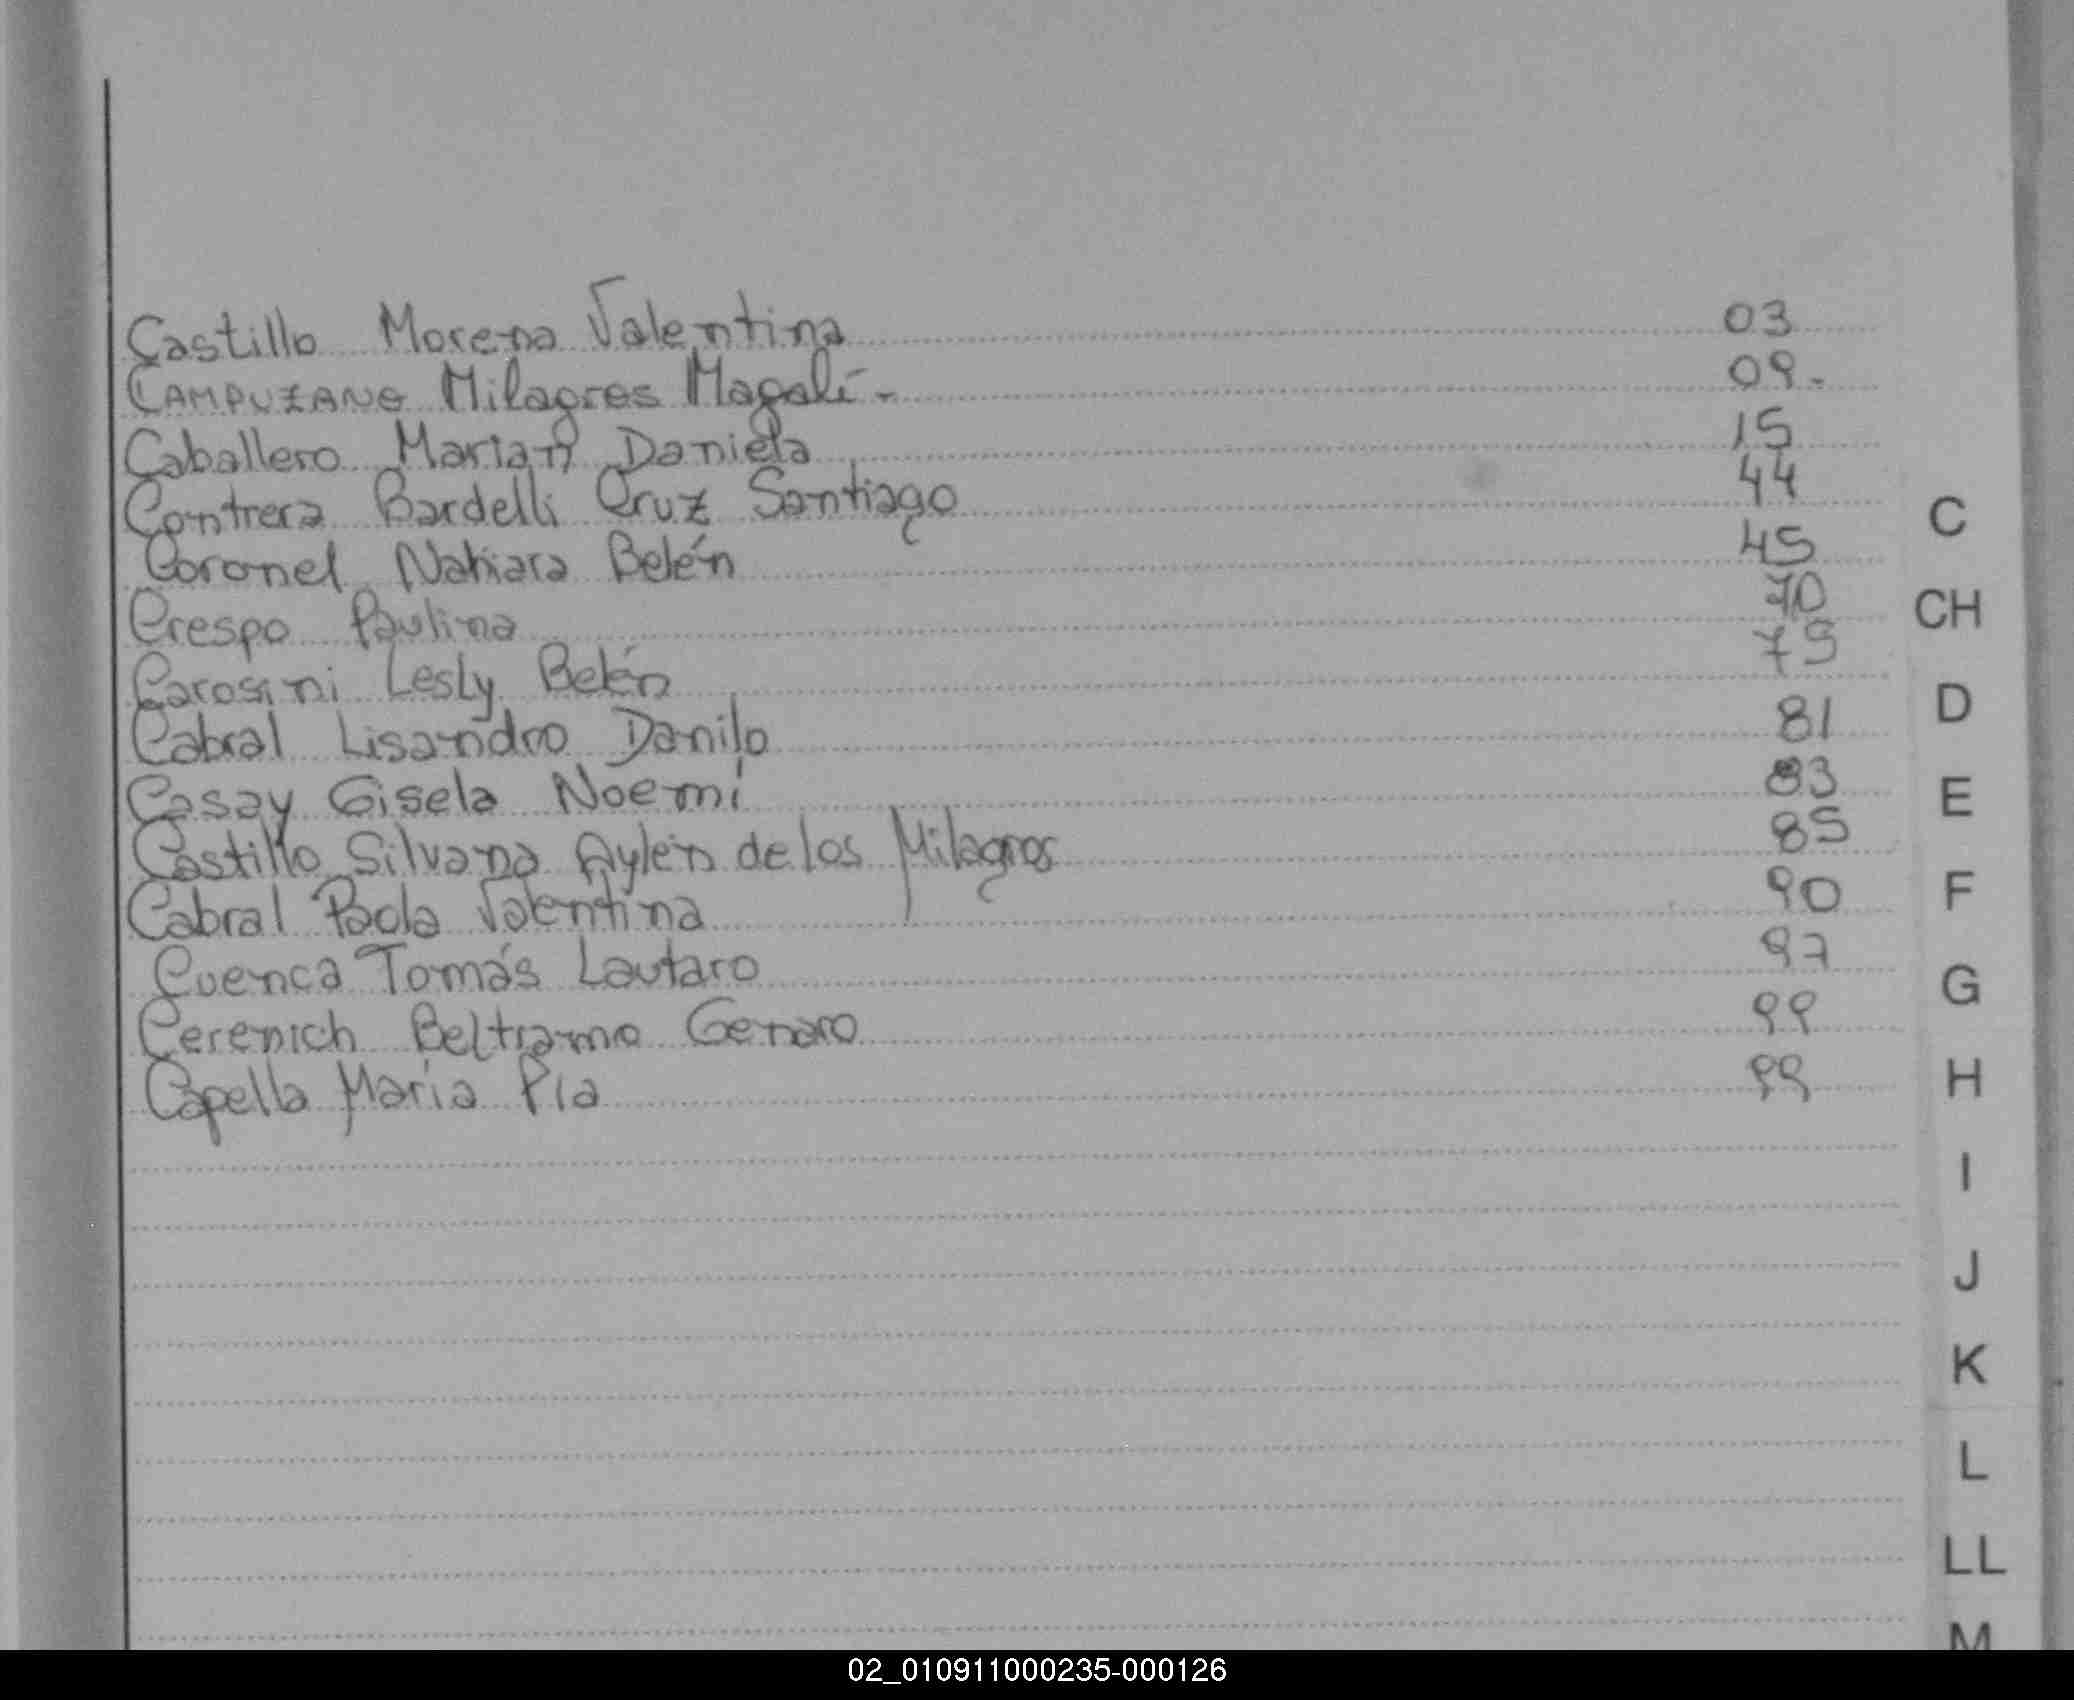 Castillo Morena Valentina 03
CAMPUZANO Milagros Magalí - 09.
Caballero Marian Daniela 15
Contrera Bardelli Cruz Santiago 44
Coronel Nahiara Belén 45
Crespo Paulina 70
Carosini Lesly Belén 75
Cabral Lisandro Danilo 81
Casay Gisela Noemí 83
Castillo Silvana Aylén de los Milagros 85
Cabral Paola Valentina 90
Cuenca Tomás Lautaro 97
Cerenich Beltramo Genaro 99
Capella María Pia 99
C
CH
D
E
F
G
H
I
J
K
L
LL
M
02_010911000235-000126